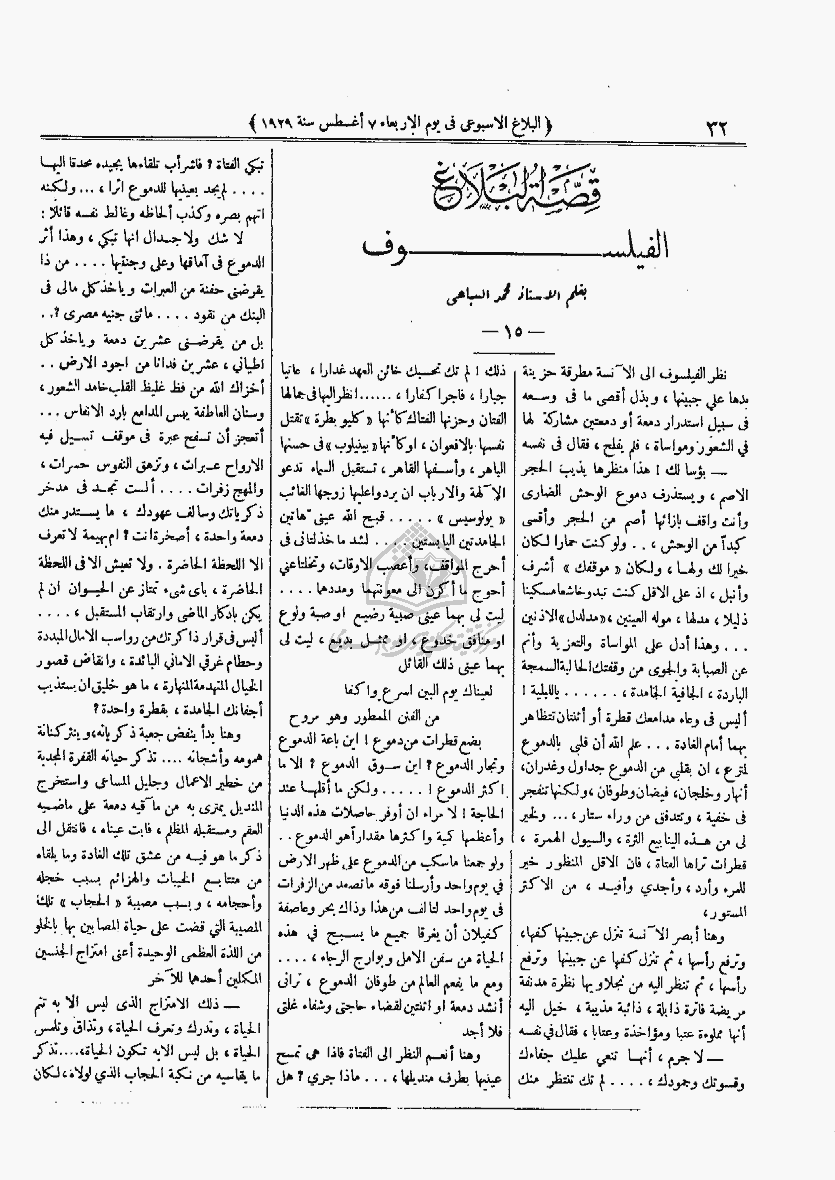 ﴿ البلاغ الاسبوعى فى يوم الاربعاء ٧ أغسطس سنة ١٩٢٩ ﴾
٣٢
قصة البلاغ
الفيلسوف
بقلم الاستاذ محمد السباعى
— ١٥ —
نظر الفيلسوف الى الآنسة مطرقة حزينة
يدها علي جبينها ، وبذل أقصي ما فى وسعه
فى سبيل استدرار دمعة أو دمعتين مشاركة لها
في الشعور ومواساة ، فلم يفلح ، فقال فى نفسه
— بؤسا لك ! هذا منظرها يذيب الحجر
الاصم ، ويستذرف دموع الوحش الضارى
وأنت واقف بازائها أصم من الحجر وأقسى
كبداً من الوحش ، . . ولو كنت حمارا لكان
خيرا لك ولها ، ولكان « موقفك » أشرف
وأنبل ، اذ على الاقل كنت تبدو خاشعا مسكينا
ذليلا ، مدلها ، موله العينين ، «مدلدل» الاذنين
. . . وهذا أدل على المواساة والتعزية وأنم
عن الصبابة والجوى من وقفتك الحالية السمجة
الباردة ، الجافية الجامدة ، . . . . . . ياللبلية !
أليس فى وعاء مدامعك قطرة أو أثنتان تتظاهر
بهما أمام الغادة . . . علم الله أن قلبي بالدموع
لمترع ، ان بقلبي من الدموع جداول وغدران،
أنهار وخلجان، فيضان وطوفان ، ولكنها تنفجر
فى خفية ، وتتدفق من وراء ستار ، ... ولخير
لى من هذه الينابيع الثرة ، والسيول الهمرة ،
قطرات تراها الفتاة ، فان الاقل المنظور خير
للمرء وأرد ، وأجدي وأفيد ، من الاكثر
المستور،
وهنا أبصر الآنسة تنزل عن جبينها كفها،
وترفع رأسها ، ثم تنزل كفها عن جبينها وترفع
رأسها ، ثم تنظر اليه من نجلاويها نظرة مدنفة
مريضة فاترة ذابلة ، ذائبة مذيبة ، خيل اليه
أنها مملوءة عتبا ومؤاخذة وعتابا ، فقال فى نفسه
— لا جرم ، أنها تنعي عليك جفاءك
وقسوتك وجمودك ، . . . . لم تك تنتظر منك
ذلك ! لم تك تحسبك خائن العهد غدارا ، عاتيا
جبارا ، فاجرا كفارا ، ......انظر اليها فى جمالها
الفتان وحزنها الفتاك كأنها « كليوبطرة » تقتل
نفسها بالافعوان ، او كأنها « بينيلوب » فى حسنها
الباهر ، وأسفها القاهر ، تستقبل السماء تدعو
الآلهة والارباب ان يردوا عليها زوجها الغائب
« يولوسيس » . . . . . قبح الله عينيّ هاتين
الجامدتين اليابستين . . . . لشد ما خذلتانى فى
أحرج المواقف، وأعصب الاوقات، وتخلتا عني
أحوج ما أكون الى معونتهما ومددهما . . . .
ليت لى بهما عينى صبية رضيع او صبة ولوع
او منافق خدوع ، او ممثل بديع ، ليت لى
بهما عينى ذلك القائل
لعيناك يوم البين اسرع واكفا
من الفنن الممطور وهو مروح
بضع قطرات من دموع ! اين باعة الدموع
وتجار الدموع ؟ اين سوق الدموع ؟ الا ما
اكثر الدموع ! . . . . . ولكن ما أقلها عند
الحاجة ! لا مراء ان أوفر حاصلات هذه الدنيا
وأعظمها كمية واكثرها مقدارا هو الدموع . .
ولو جمعنا ماسكب من الدموع على ظهر الارض
في يوم واحد وأرسلنا فوقه ما تصعد من الزفرات
فى يوم واحد لتالف من هذا وذاك بحر وعاصفة
كفيلان أن يغرقا جميع ما يسبح في هذه
الحياة من سفن الامل وبوارج الرجاء ، . . . .
ومع ما يفعم العالم من طوفان الدموع ، ترانى
أنشد دمعة او اثنتين لقضاء حاجتى وشفاء غلتى
فلا أجد
وهنا أنعم النظر الى الفتاة فاذا هى تمسح
عينيها بطرف منديلها ، . . . ماذا جري ؟ هل
تبكي الفتاة ؟ فاشرأب تلقاءها بجيده محدقا اليها
. . . . لم يجد بعينيها للدموع اثرا ، ... ولكنه
اتهم بصره وكذب ألحاظه وغالط نفسه قائلا :
لا شك ولا جدال انها تبكي ، وهذا أثر
الدموع فى آماقها وعلى وجنتيها . . . . من ذا
يقرضنى حفنة من العبرات وياخذ كل مالى فى
البنك من نقود . . . . مائتى جنيه مصرى ؟. .
بل من يقرضنى عشرين دمعة وياخذ كل
اطيانى ، عشرين فدانا من اجود الارض . .
أخزاك الله من فظ غليظ القلب خامد الشعور ،
وسنان العاطفة يبس المدامع بارد الانفاس ...
أتعجز أن تسفح عبرة فى موقف تسيل فيه
الارواح عبرات ، وتزهق النفوس حسرات ،
والمهج زفرات . . . . ألست تجد فى مدخر
ذكرياتك وسالف عهودك ، ما يستدر منك
دمعة واحدة ، أصخرة انت ؟ ام بهيمة لا تعرف
الا اللحظة الحاضرة . ولا تعيش الا فى اللحظة
الحاضرة ، باى شىء تمتاز عن الحيوان ان لم
يكن بادكار الماضى وارتقاب المستقبل ، . . . .
أليس فى قرار ذاكرتك من رواسب الامال المبددة
وحطام غرقي الاماني البائدة ، وانقاض قصور
الخيال المتهدمة المنهارة ، ما هو خليق ان يستذيب
أجفانك الجامدة ، بقطرة واحدة ؟
وهنا بدأ ينفض جعبة ذكرياته، وينثر كنانة
همومه وأشجانه .... تذكر حياته القفرة المجدبة
من خطير الاعمال وجليل المساعى واستخرج
المنديل يمترى به من ماقيه دمعة على ماضيه
العقم ومستقبله المظلم ، فابت عيناه ، فانتقل الى
ذكر ما هو فيه من عشق تلك الغادة وما يلقاه
من متتابع الخيبات والهزائم بسبب خجله
وأحجامه ، وبسبب مصيبة « الحجاب » تلك
المصيبة التي قضت على حياة المصابين بها بالخلو
من اللذة العظمى الوحيدة أعنى امتزاج الجنسين
المكملين أحدهما للآخر
— ذلك الامتزاج الذى ليس الا به تتم
الحياة ، وتدرك وتعرف الحياة ، وتذاق وتلمس
الحياة ، بل ليس الابه تكون الحياة،....تذكر
ما يقاسيه من نكبة الحجاب الذي لولاه ، لكان